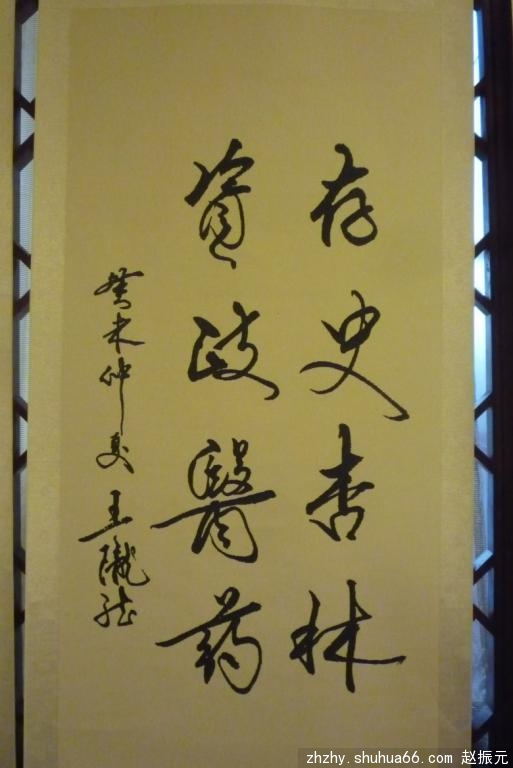 存史杏林
资政醫药
癸未仲夏 王陇德
zhzhy.shuhua66.com 赵振元